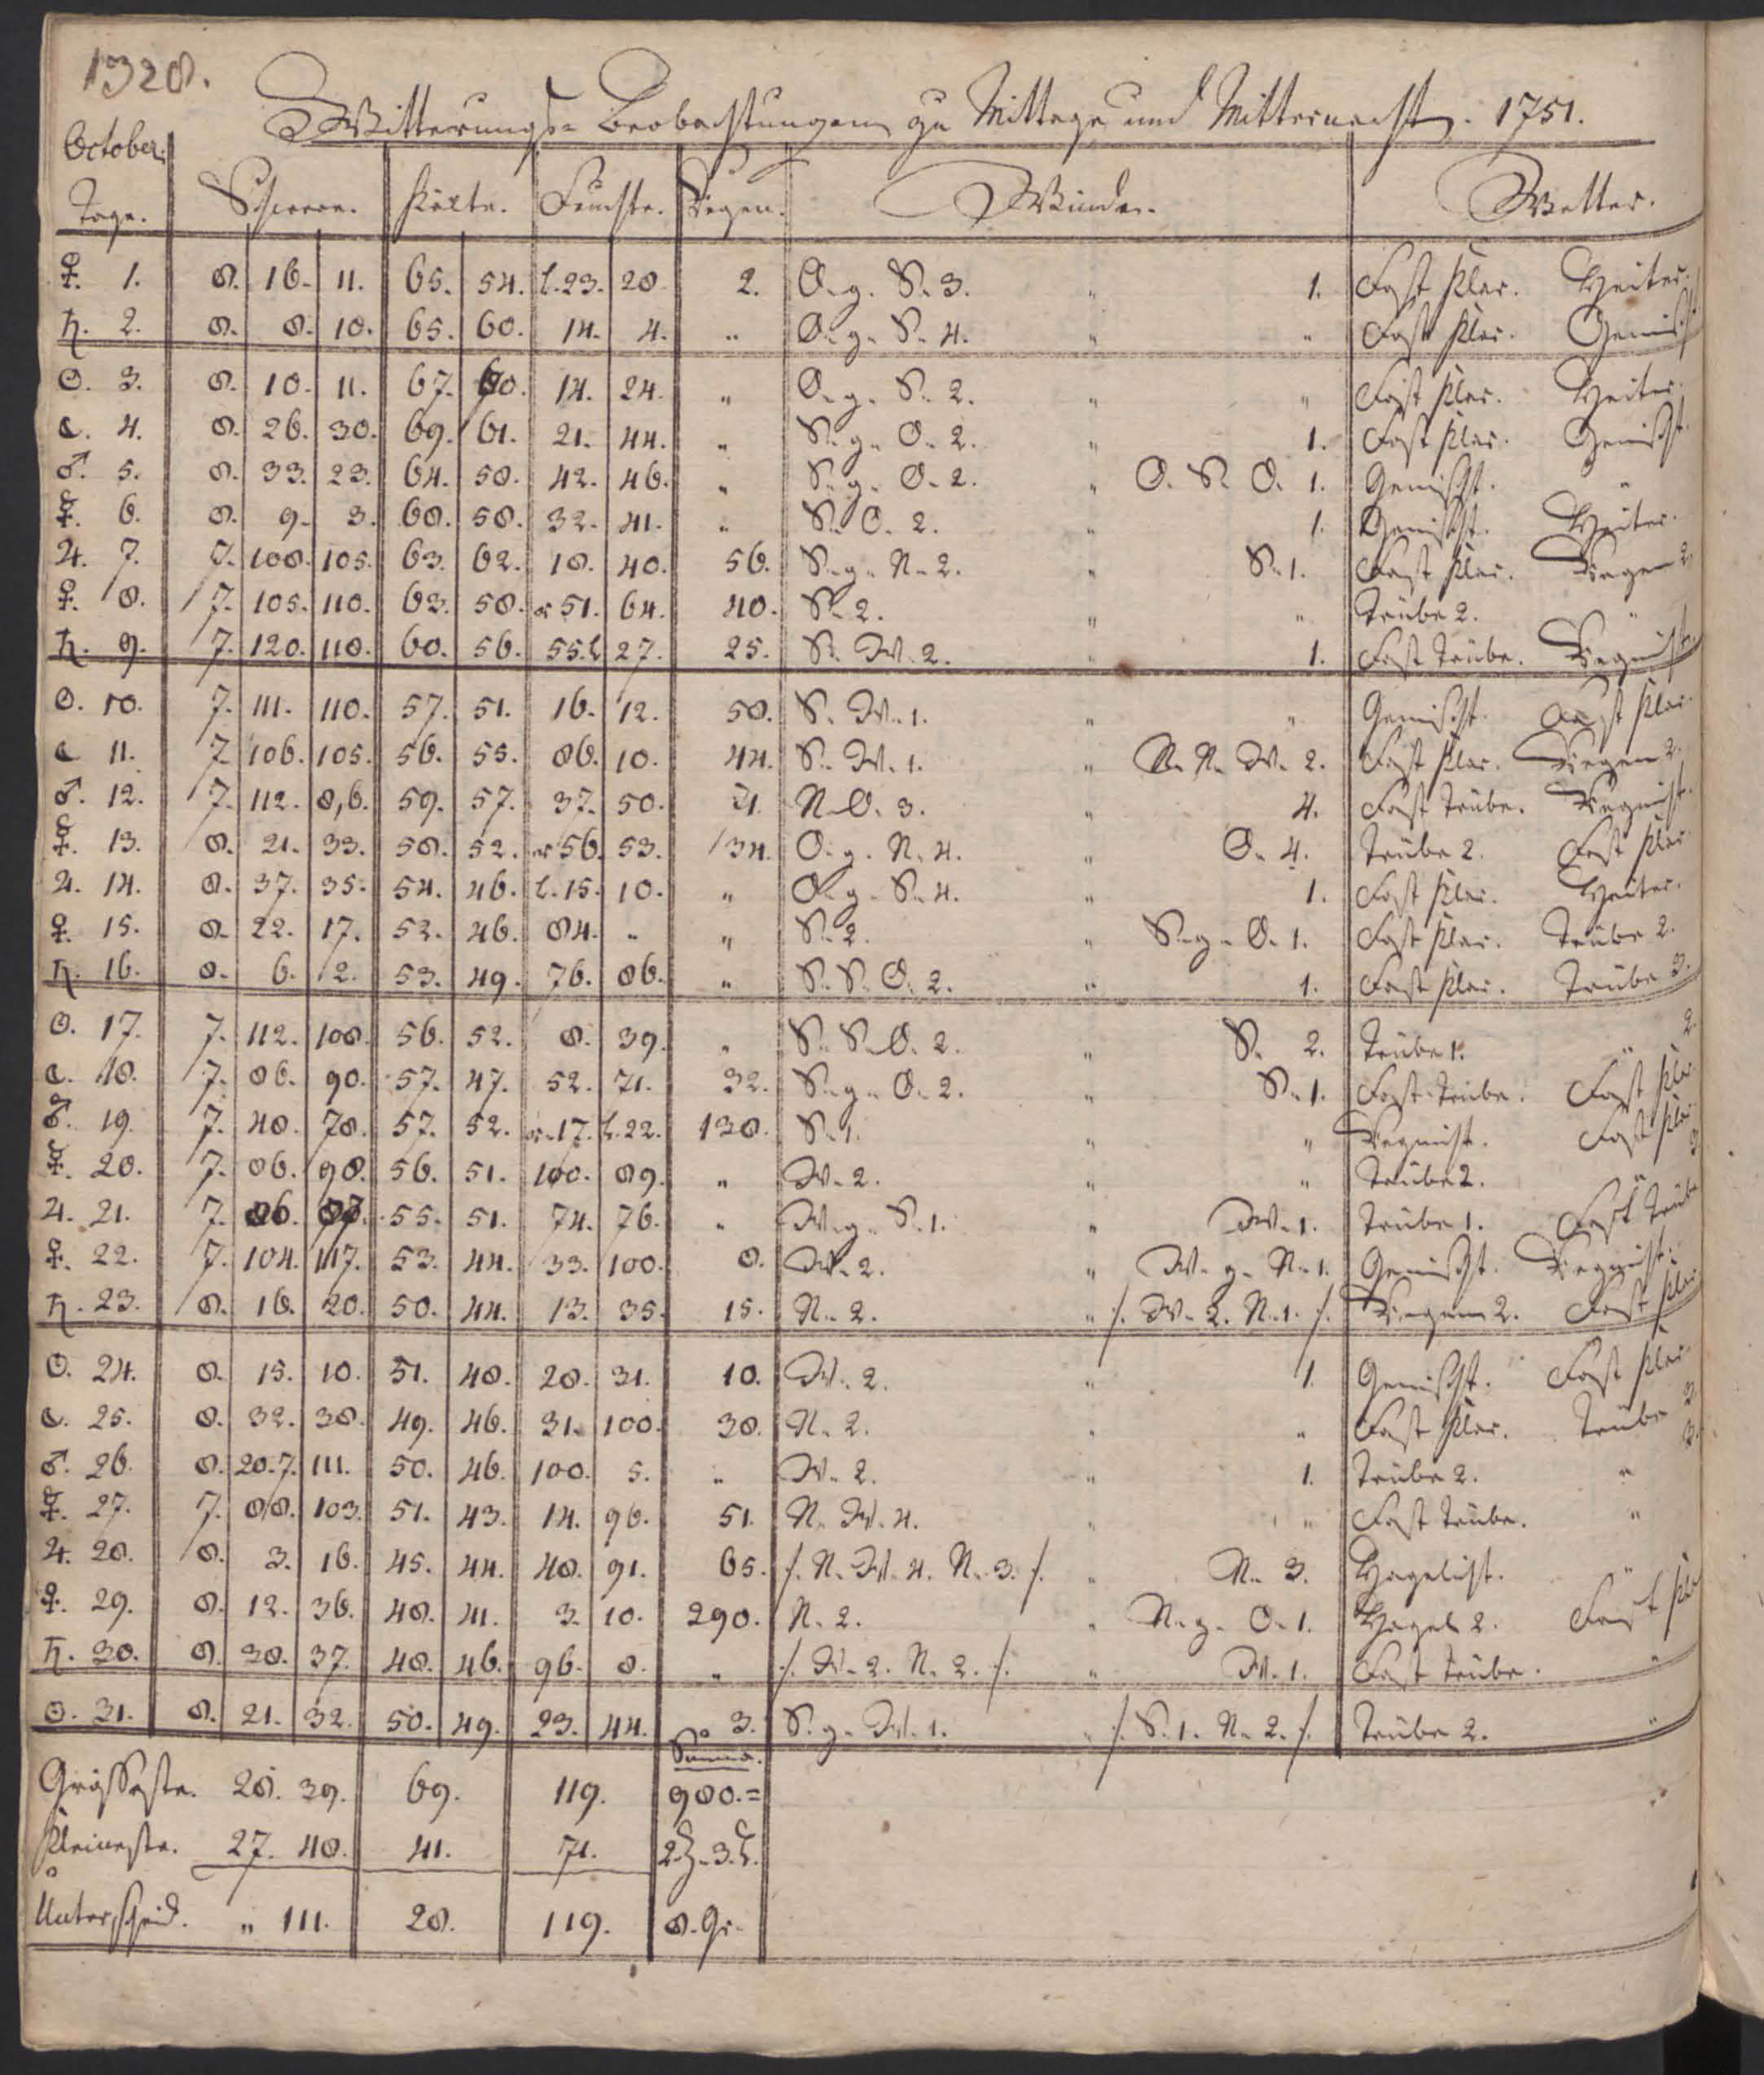 1328.
Witterungs-Beobachtungen zu Mittage und Mitternacht. 1751.
October.
Tage. Schwere. Kälte. Feuchte. Regen. Winde. Wetter.
♀. 1. 8. 16. 11. 65. 54. l. 23. 28. 2. O. g. S. 3. " 1. Fast klar. Heiter.
♄. 2. 8. 8. 10. 65. 60. 14. 4. " O. g. S. 4. " " Fast klar. Gemischt.
☉. 3. 8. 10. 11. 67. 60. 14. 24. " O. g. S. 2. " " Fast klar. Heiter.
☾. 4. 8. 26. 30. 69. 61. 21. 44. " S. g. O. 2. " 1. Fast klar. Gemischt.
♂. 5. 8. 33. 23. 64. 58. 42. 46. " S. g. O. 2. " O. S. O. 1. Gemischt. "
☿. 6. 8. 9. 3. 68. 58. 32. 41. " S. O. 2. " 1. Gemischt. Heiter.
♃. 7. 7. 108. 105. 63. 62. 18. 40. 56. S. g. N. 2. " S. 1. Fast klar. Regen 2.
♀. 8. 7. 105. 110. 63. 58. 51. 64. 40. S. 2. " " Trübe 2. "
♄. 9. 7. 120. 118. 60. 56. 55. l. 27. 25. S. W. 2. " 1. Fast trübe. Regnicht.
☉. 10. 7. 111. 110. 57. 51. 16. 12. 58. S. W. 1. " " Gemischt. Fast klar.
☾ 11. 7. 106. 105. 56. 55. 86. 10. 44. S. W. 1. " N. W. 2. Fast klar. Regen 2.
♂. 12. 7. 112. 8,6. 59. 57. 37. 50. 21. N. O. 3. " 4. Fast trübe. Regnicht.
☿. 13. 8. 21. 33. 58. 52. 56. 53. 134. O. g. N. 4. " O. 4. Trübe 2. Fast klar
♃. 14. 8. 37. 35. 54. 46. l. 15. 10. " O. g. S. 4. " 1. Fast klar. Heiter.
♀. 15. 8. 22. 17. 52. 46. 84. " " S. 2. " S. g. O. 1. Fast klar. Trübe 2.
♄. 16. 8. 6. 2. 53. 49. 76. 86. " S. S. O. 2. " 1. Fast klar. Trübe 3.
☉. 17. 7. 112. 108. 56. 52. 8. 39. " S. S. O. 2. " S. 2. Trübe 1. " 2.
☾. 18. 7. 86. 90. 57. 47. 52. 71. 32. S. g. O. 2. " S. 1. Fast trübe. Fast klar
♂. 19. 7. 48. 78. 57. 52. 17. l. 22. 138. S. 1. " " Regnicht. Fast klar
☿. 20. 7. 86. 98. 56. 51. 100. 89. " W. 2. " " Trübe 2. " 3
♃. 21. 7. 55. 51. 74. 76. " W. g. S. 1. " W. 1. Trübe 1. Fast trübe
♀. 22. 7. 104. 117. 53. 44. 33. 100. 8. W. 2. " W. g. N. 1. Gemischt. Regnicht.
♄. 23. 8. 16. 20. 50. 44. 13. 35. 15. N. 2. " /. W. 2. N. 1. /. Regen 2. Fast klar
☉. 24. 8. 15. 10. 51. 48. 28. 31. 10. W. 2. " 1. Gemischt. Fast klar.
☾. 25. 8. 32. 38. 49. 46. 31. 100. 38. N. 2. " " Fast klar. Trübe 3.
♂. 26. 8. 20. 7. 111. 50. 46. 100. 5. " W. 2. " 1. Trübe 2. " 3.
☿. 27. 7. 88. 103. 51. 43. 14. 96. 51. N. W. 4. " " Fast trübe. "
♃. 28. 8. 3. 16. 45. 44. 48. 91. 65. /. N. W. 4. N. 3. /. " N. 3. Hagelicht. "
♀. 29. 8. 12. 36. 48. 41. 3. 10. 290. N. 2. " N. g. O. 1. Hagel 2. Fast kl
♄. 30. 8. 38. 37. 48. 46. 96. 8. " /. W. 2. N. 2. /. " W. 1. Fast trübe. "
☉. 31. 8. 21. 32. 50. 49. 23. 44. 3. S. g. W. 1. " /. S. 1. N. 2. /. Trübe 2. "
Summa.
Grösseste. 28. 39. 69. 119. 980.=
Kleineste. 27. 48. 41. 71. 2 3.
Unterscheid. " 111. 28. 119. 8. Gr.